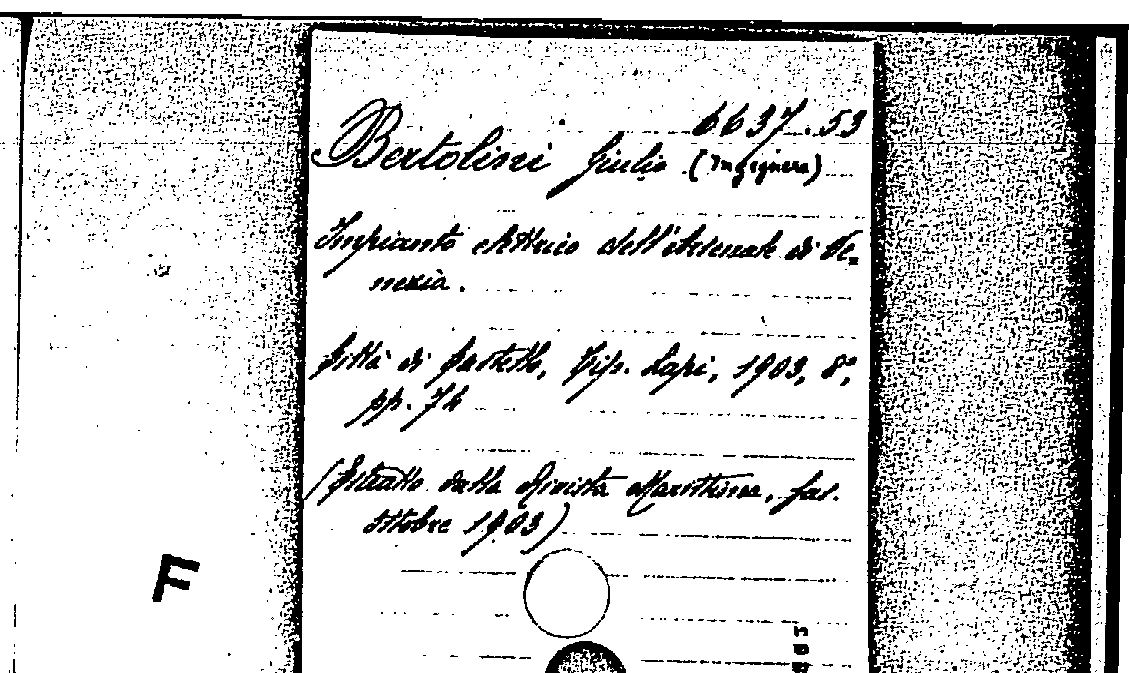 6637.53
Bertolini Giulio (Ingegnere)
Impianto elettrico dell'Arsenale di Ve=
nezia.
Città di Castello, Tip. Lapi, 1903, 8°,
pp. 74
(Estratto dalla Rivista Marittima, fas.
ottobre 1903)
F